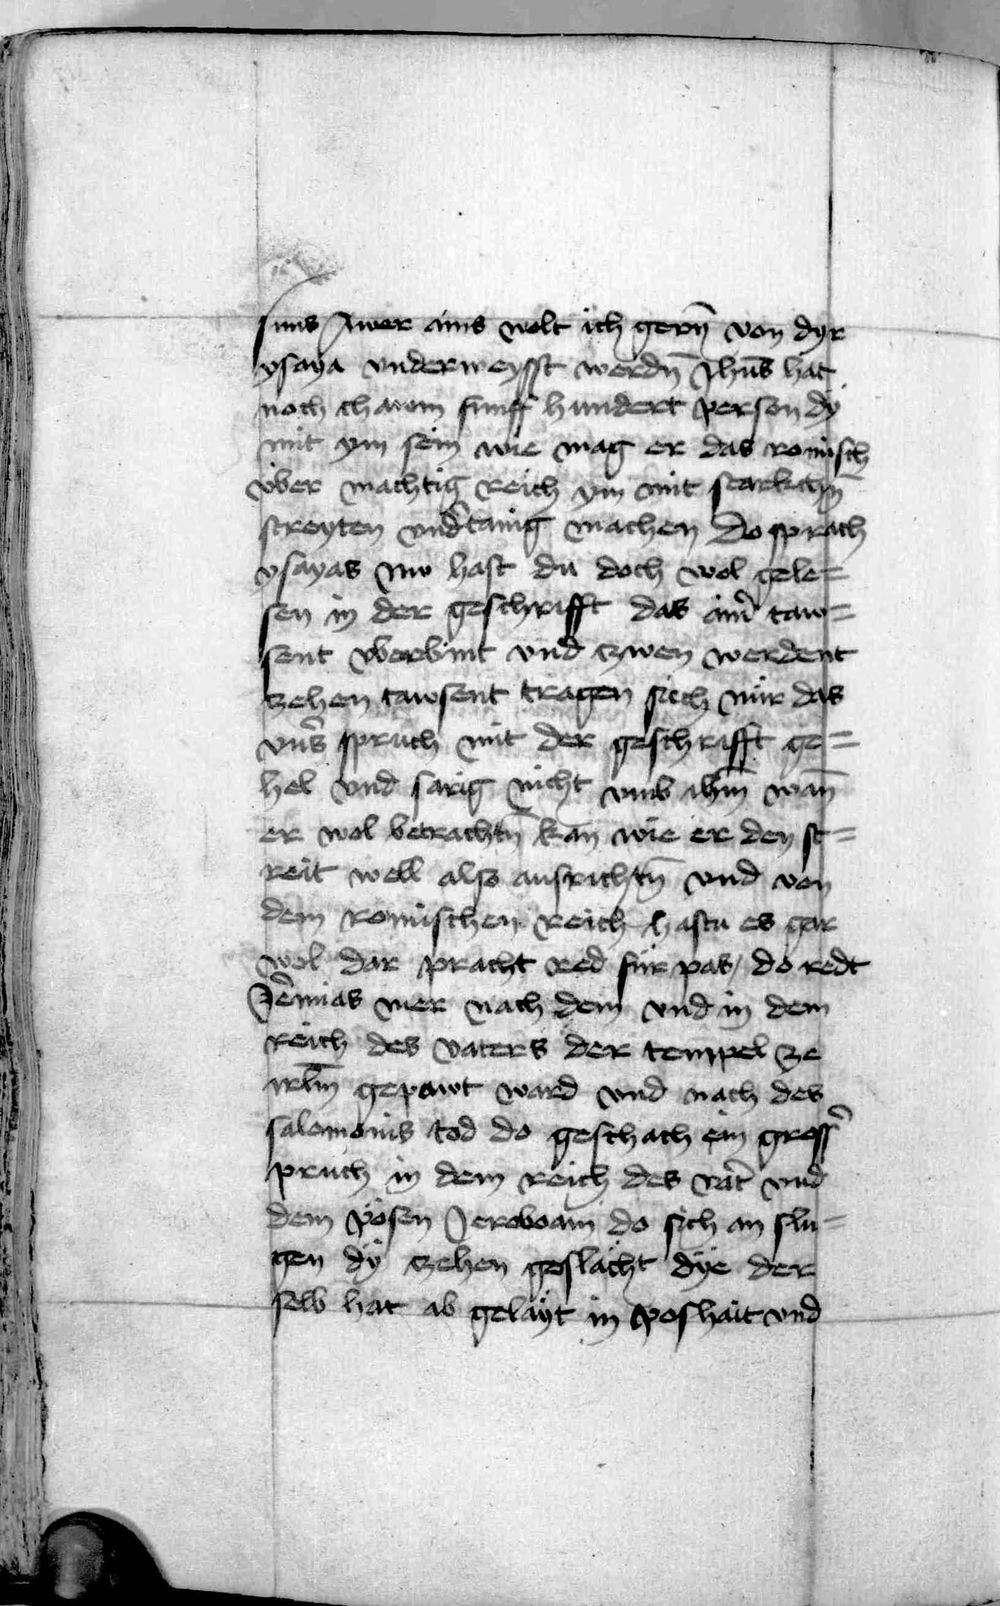 suns Awer ains wolt ich gerñ von dyr
ysaya vnderweysst werdñ Jhũs hat
noch chawm funff hundert person dy
mit ym sein wie mag er das romisch
über machtig reich ym mit starkchñ
streyten vnd̃tanig machen Do sprach
ysayas Nw hast du doch wol gele=
sen in der geschrifft das ain̄ taw=
sent vberbint vnd zwen werdent
zehen tawsent tragen sich nür das
vns̃ spruch mit der geschrifft ge=
hel vnd sarig nicht vmb ihm̄ wan̄
er wol betrachtñ kan wie er den st=
reit well also ausrichtñ vnd von
dem romischen reich hastu es gar
wol dar pracht red für pas / do redt
Jẽmias mer nach dem vnd in dem
reich des vaters der tempel ze
irlm̄ gepawt ward vnd nach des
salomonis tod do geschach ein gross̃
pruch in dem reich des vat̃ vnd
dem pösen Jeroboam do sich an slu=
gen dÿ zehen geslächt dÿe der
selb hat ab gelayt in poshait vnd